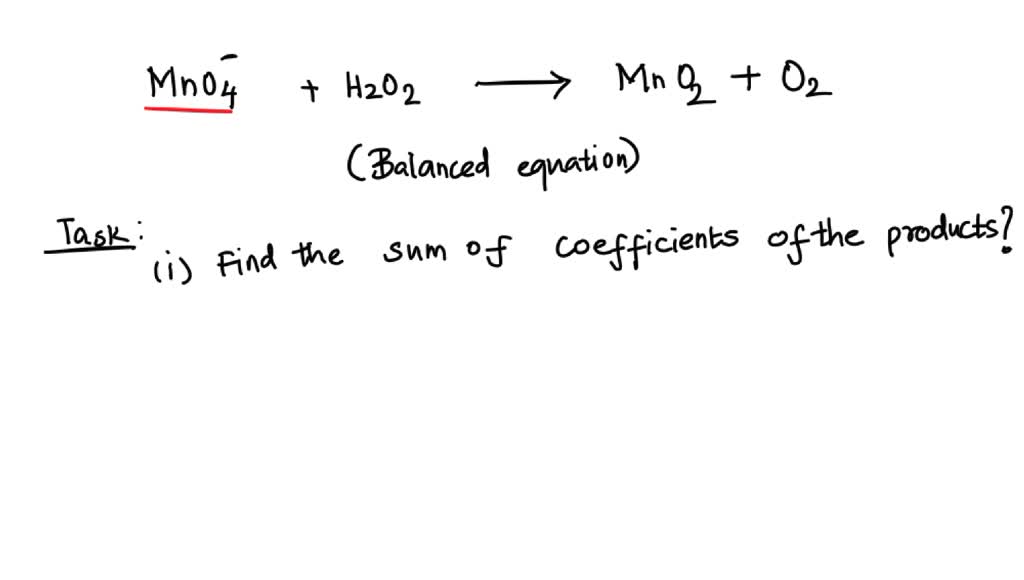 MnO₄⁻ + H₂O₂ ⟶ MnO₂ + O₂
(Balanced equation)
Task:
(i) Find the sum of coefficients of the products?